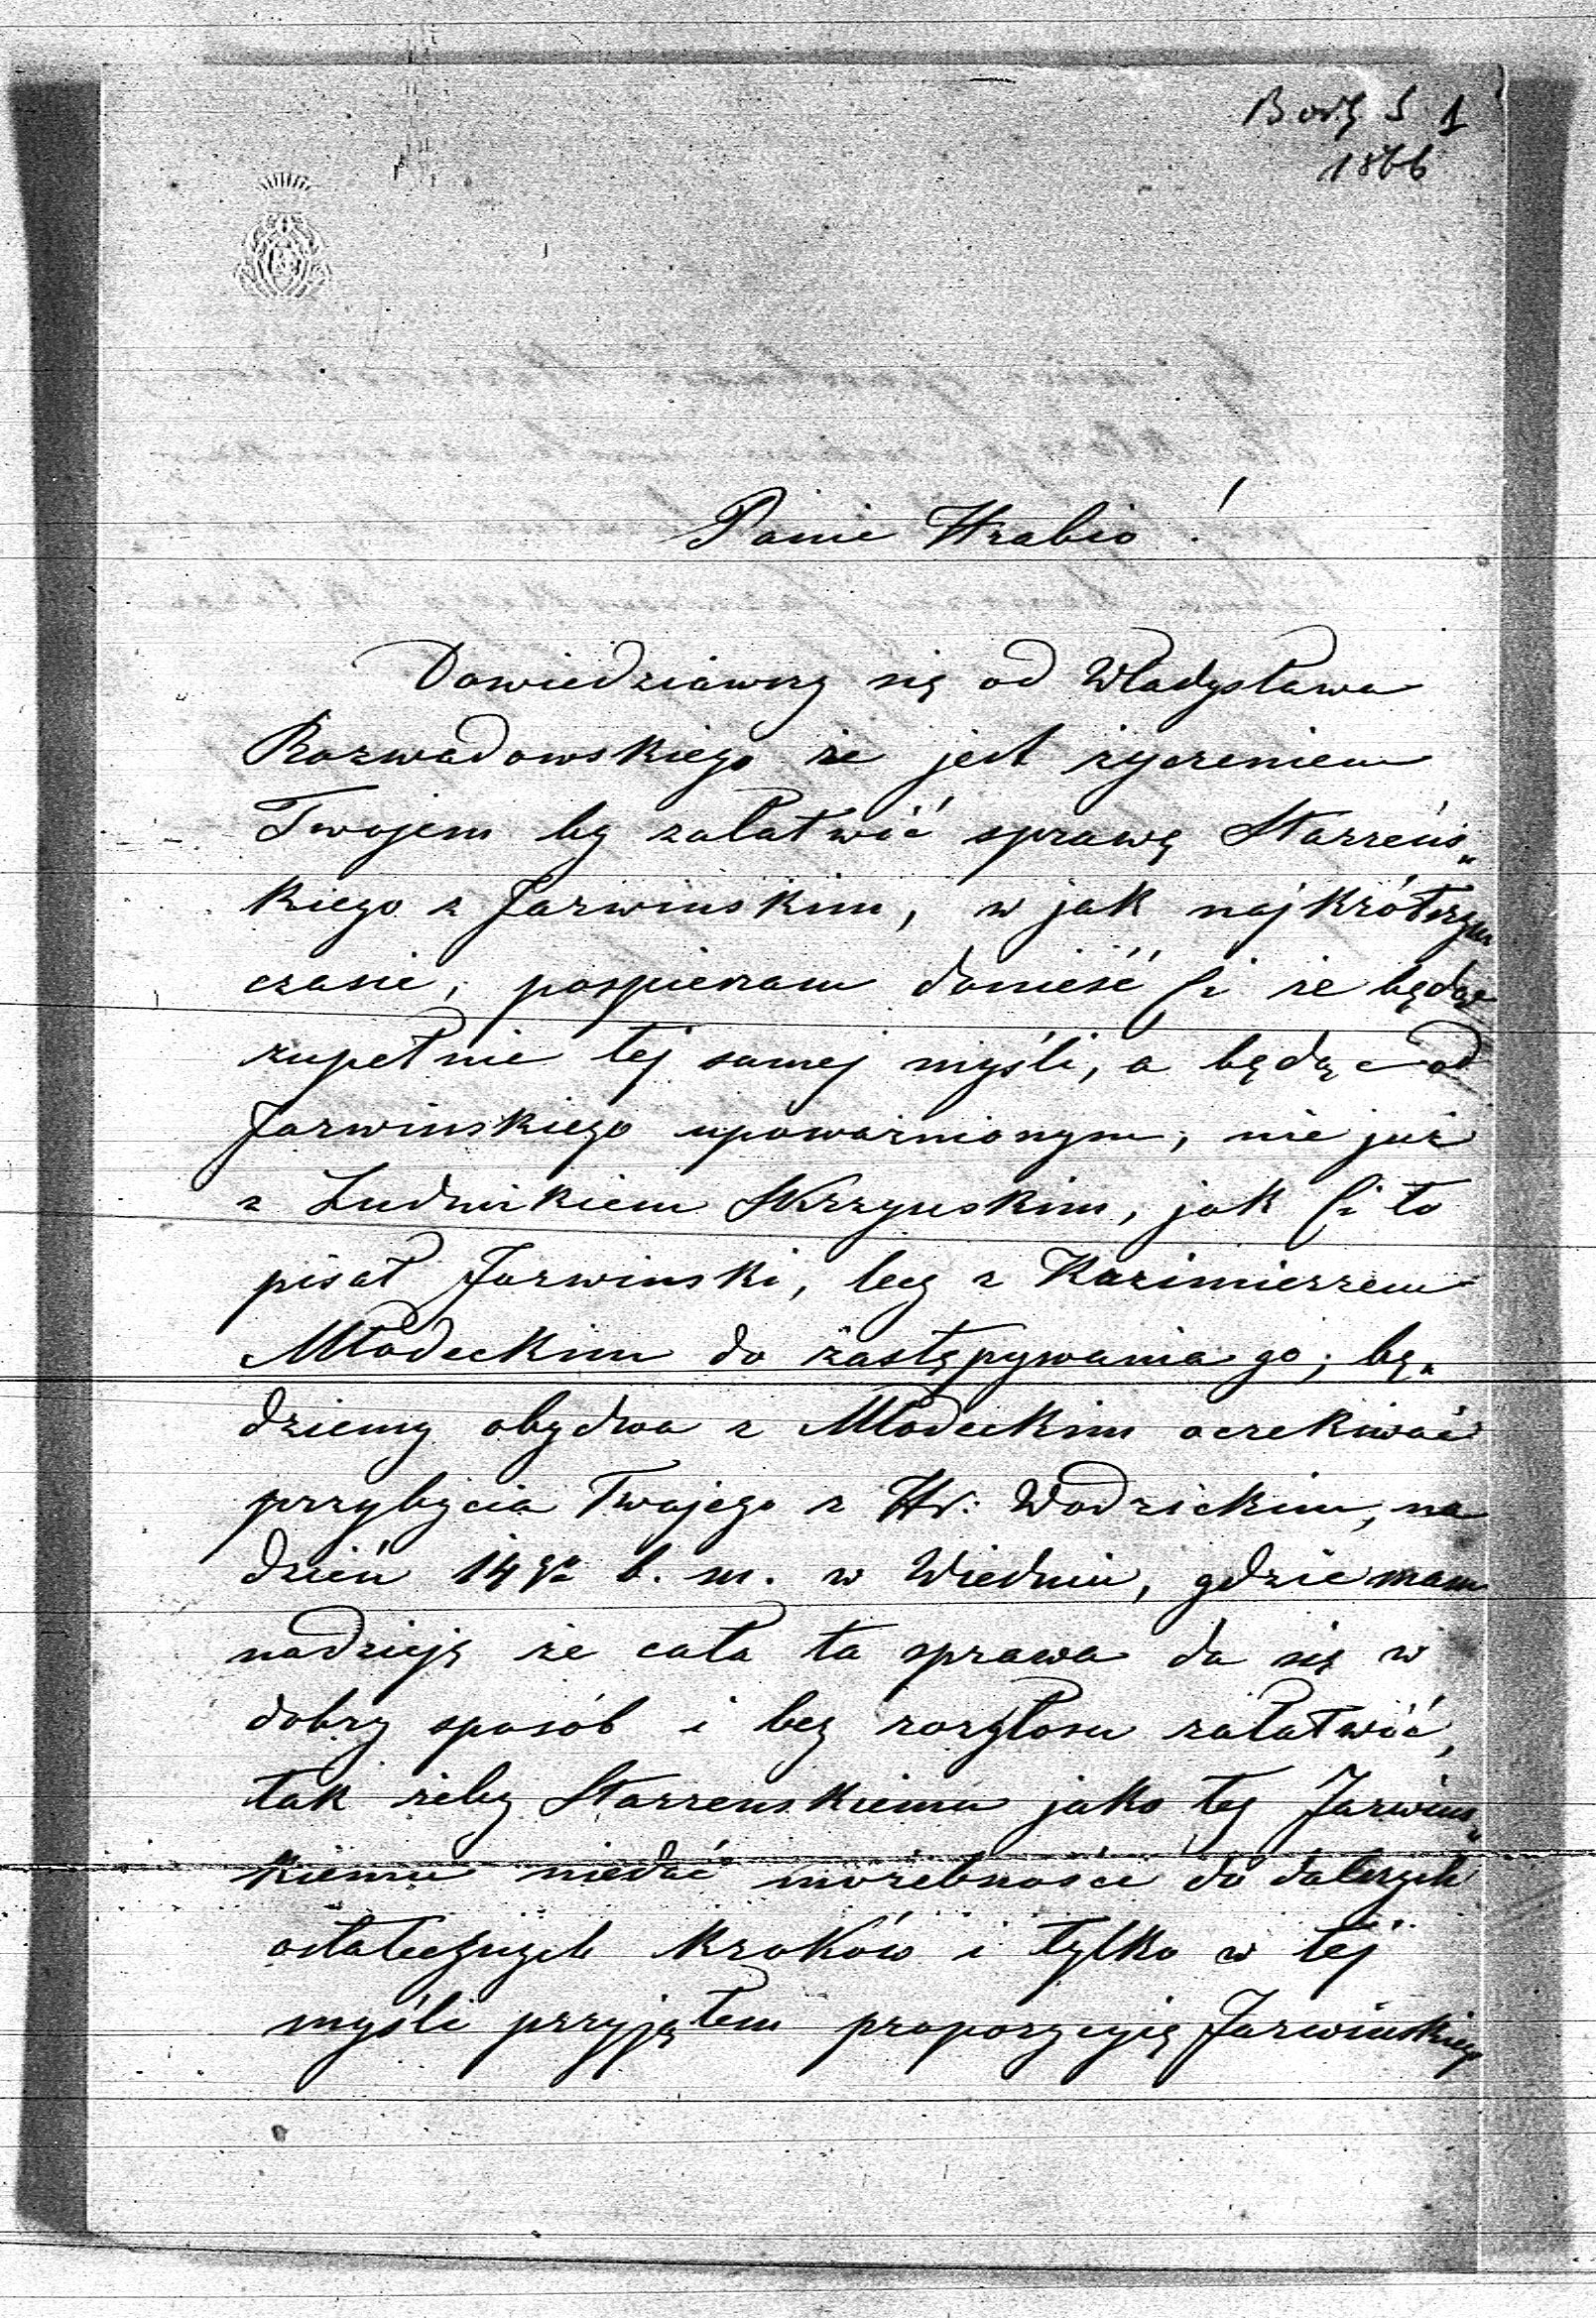 Borg. S. 1
1866
Panie Hrabio!
Dowiedziawszy się od Władysława
Rozwadowskiego że jest życzeniem
Twojem by załatwić sprawę Starzeńs„
kiego z Jarwinskim, w jak najkrótszym
czasie, pospieszam donieść Ci że będąc
zupełnie tej samej myśli, a będąc od
Jarwinskiego upoważnionym, nie już
z Ludwikiem Skrzyńskim, jak Ci to
pisał Jarwinski, lecz z Kazimierzem
Młodeckim do zastępywania go; bę„
dziemy obydwa z Młodeckim oczekiwać
przybycia Twojego z Hr: Wodzickim, na
dzień 14go b. m. w Wiedniu, gdzie mam
nadzieję że cała ta sprawa da się w
dobry sposób i bez rozgłosu załatwić,
tak żeby Starzenskiemu jako też Jarwins„
kiemu niedać możebności do dalszych
ostatecznych kroków i tylko w tej
myśli przyjąłem propozycyię Jarwinskiego